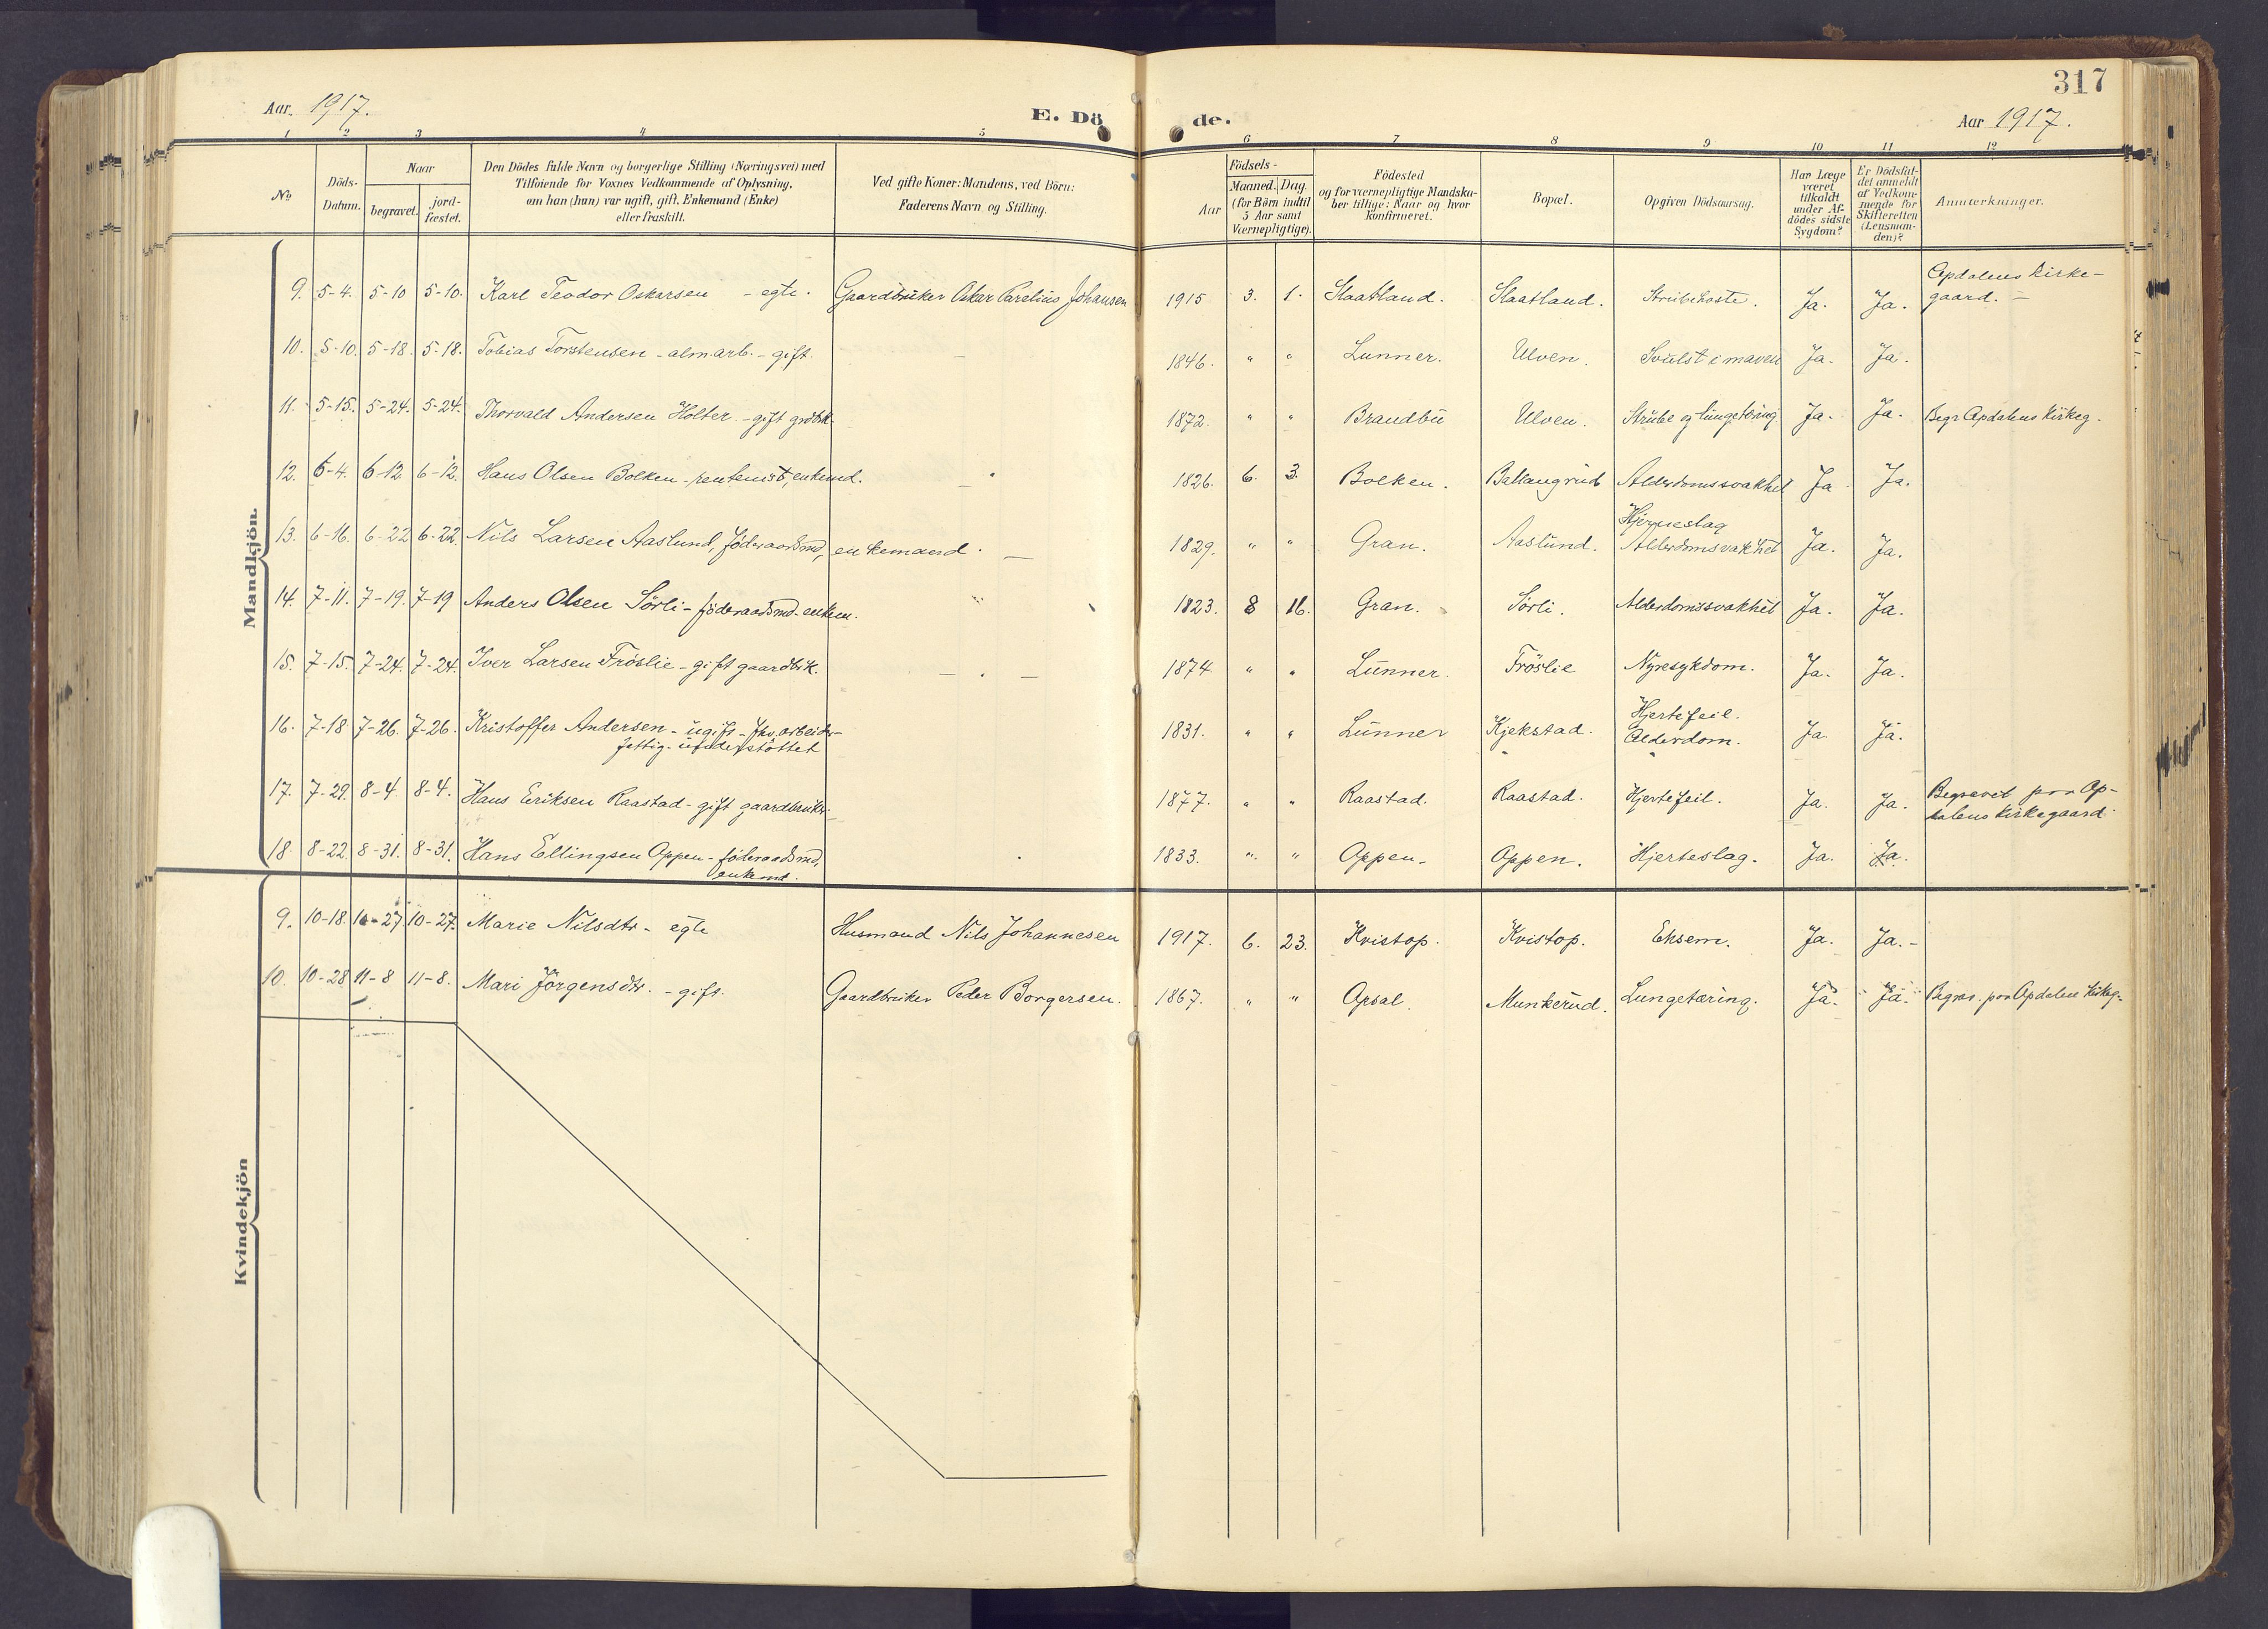 317
Aar. 1917.
E. Dö
de.
Aar 1917.
1 2 3 4 5 6 7 8 9 10 11 12
No
Döds-
Datum.
Naar
begravet.
jord-
fæstet.
Den Dödes fulde Navn og borgerlige Stilling (Næringsvei) med
Tilföiende for Voxnes Vedkommende af Oplysning,
om han (hun) var ugift, gift, Enkemand (Enke)
eller fraskilt.
Ved gifte Koner: Mandens, ved Börn:
Faderens Navn og Stilling.
Födsels-
Aar
Maaned. Dag.
(for Börn indtil
5 Aar samt
Værnepligtige).
Födested
og for værnepligtige Mandska-
ber tillige: Naar og hvor
konfirmeret.
Bopæl.
Opgiven Dödsaarsag.
Har Læge
været
tilkaldt
under Af-
dödes sidste
Sygdom?
Er Dödsfal-
det anmeldt
af Vedkom-
mende for
Skifteretten
(Lensman-
den)?
Anmærkninger.
Mandkjön.
9. 5-4. 5-10 5-10. Karl Teodor Oskarsen - egte. Gaardbruker Oskar Parelius Johansen 1915 3. 1. Slaatland. Slaatland. Strubehoste. Ja. Ja. Apdalens kirke-
gaard. -
10. 5-10. 5-18. 5-18. Tobias Torstensen - alm. arb. - gift. - 1846. " " Lunner. Ulven. Svulst i maven Ja. Ja.
11. 5-15. 5-24. 5-24. Thorvald Andersen Holter - gift grdbk. 1872. " " Brandbu Ulven. Strube og lungetæring Ja. Ja. Begr Apdalens kirkeg.
12. 6-4. 6-12. 6-12. Hans Olsen Bolken - rentenist, enkemd. - 1826. 6. 3. Bolken. Ballangrud Alderdomssvakhet Ja Ja.
13. 6-16. 6-22 6-22. Nils Larsen Aaslund, föderaadsmd, enkemand. - 1829. " " Gran. Aaslund. Hjerneslag
Alderdomsvakhet Ja. Ja.
14. 7-11. 7-19. 7-19 Anders Olsen Sörli - föderaadsmd. enkem. " 1823. 8 16. Gran. Sörli. Alderdomssvakhet Ja. Ja.
15. 7-15. 7-24. 7-24. Iver Larsen Fröslie - gift gaardbrk. - " - 1874. " " Lunner. Fröslie Nyresykdom. Ja. Ja.
16. 7-18 7-26. 7-26. Kristoffer Andersen - ugift - fhv. arbeider-
fattig-understöttet 1831. " " Lunner Kjekstad. Hjertefeil.
Alderdom. Ja Ja.
17. 7-29. 8-4. 8-4. Hans Eriksen Raastad - gift gaardbruker. 1877. " " Raastad. Raastad. Hjertefeil. Ja. Ja. Begravet paa Ap-
dalens kirkegaard.
18. 8-22. 8-31. 8-31. Hans Ellingsen Oppen - föderaadsmd,
enkemd. 1833. " " Oppen. Oppen. Hjerteslag. Ja. Ja.
Kvindekjön
9. 10-18. 10-27. 10-27. Marie Nilsdtr - egte Husmand Nils Johannesen 1917. 6. 23. Kvistop. Kvistop. Eksem. Ja. Ja. -
10. 10-28 11-8 11-8. Mari Jörgensdtr. - gift. Gaardbruker Peder Borgersen. 1867. " " Opsal. Munkerud. Lungetæring. Ja. Ja. Begrav. paa Apdalen kirkeg.